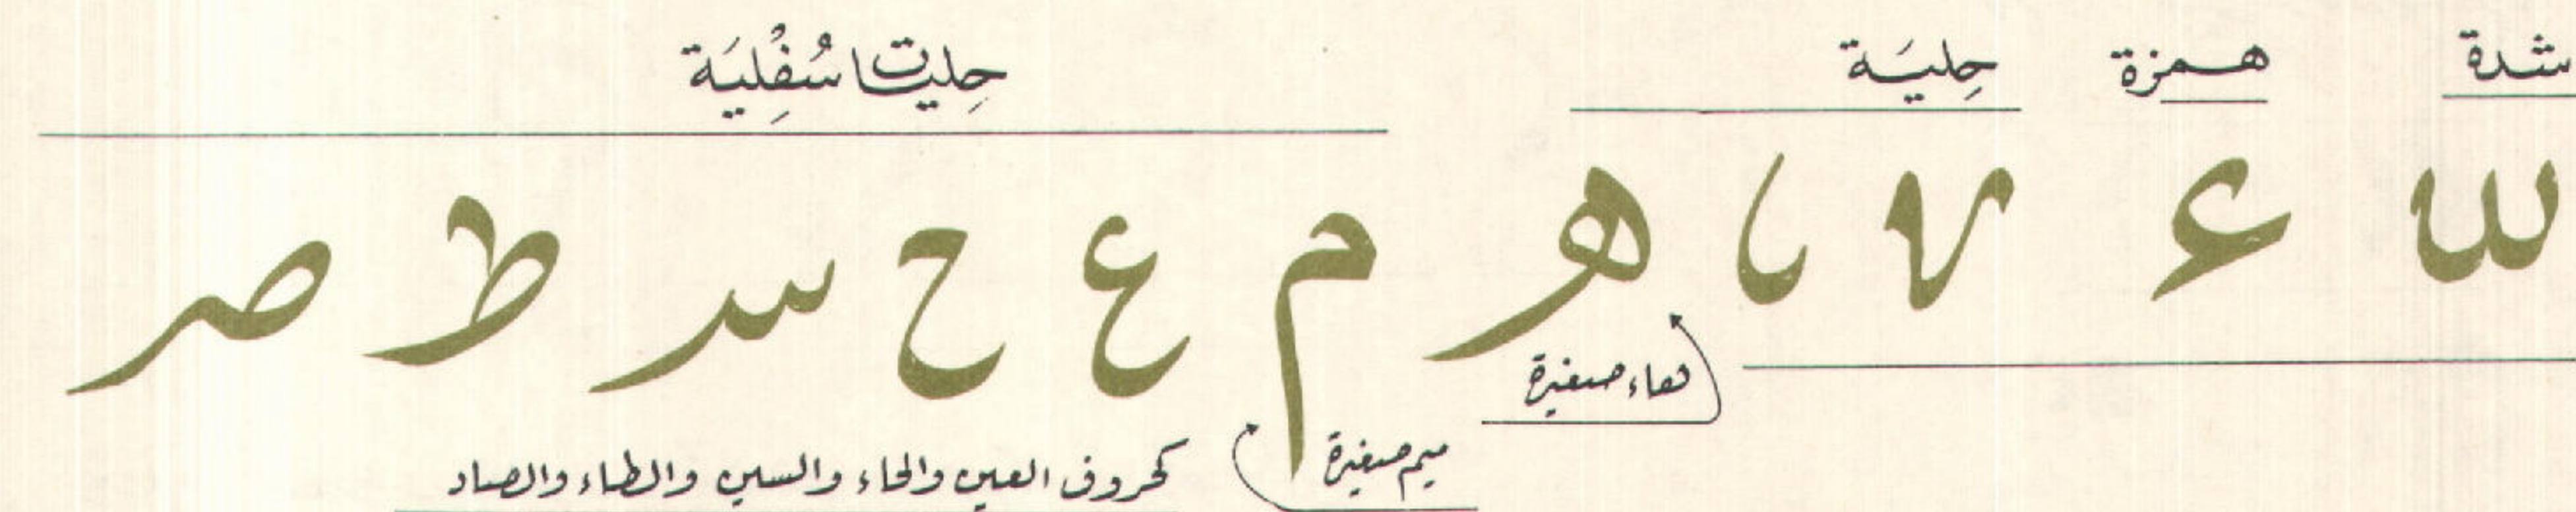 شدة همزة حِليَة حِليات سُفْلِيَة
س ء ه م ع ح سر ط صر
هاء صغيرة
ميم صغيرة
كحروف العين والحاء والسين والطاء والصاد